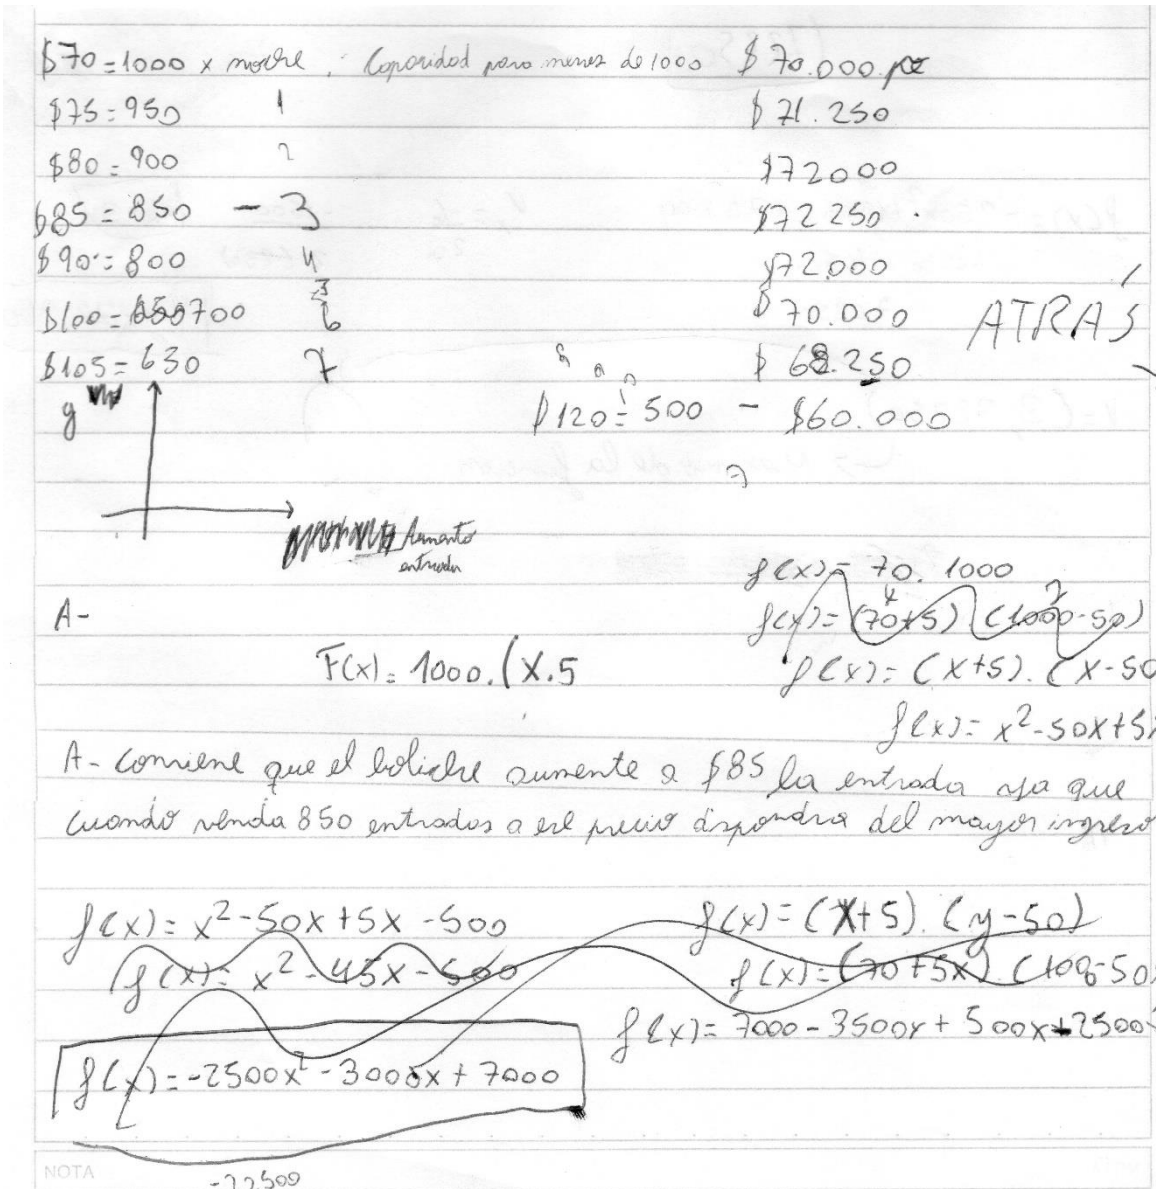 $70=1000 x noche. Capacidad para menos de 1000 $70.000
$75=950 1 $71.250
$80=900 2 $72000
$85=850 - 3 $72250.
$90=800 4 $72.000
$100=700 6 $70.000 ATRÁS
$105=630 7 $68.250
y $120=500 - $60.000
Aumento
entrada
f(x)= 70.1000
A- f(x)=(70+5)(1000-50)
F(x)=1000.(x.5 f(x)=(x+5).(x-50
f(x)=x²-50x+5x
A- conviene que el boliche aumente a $85 la entrada ya que
cuando venda 850 entradas a ese precio dispondra del mayor ingreso
f(x)=x²-50x+5x-500 f(x)=(x+5).(y-50)
f(x)=x²-45x-500 f(x)=(70+5x).(100-50x
f(x)=7000-3500x+500x-2500
f(x)=-2500x²-3000x+7000
NOTA
-22500